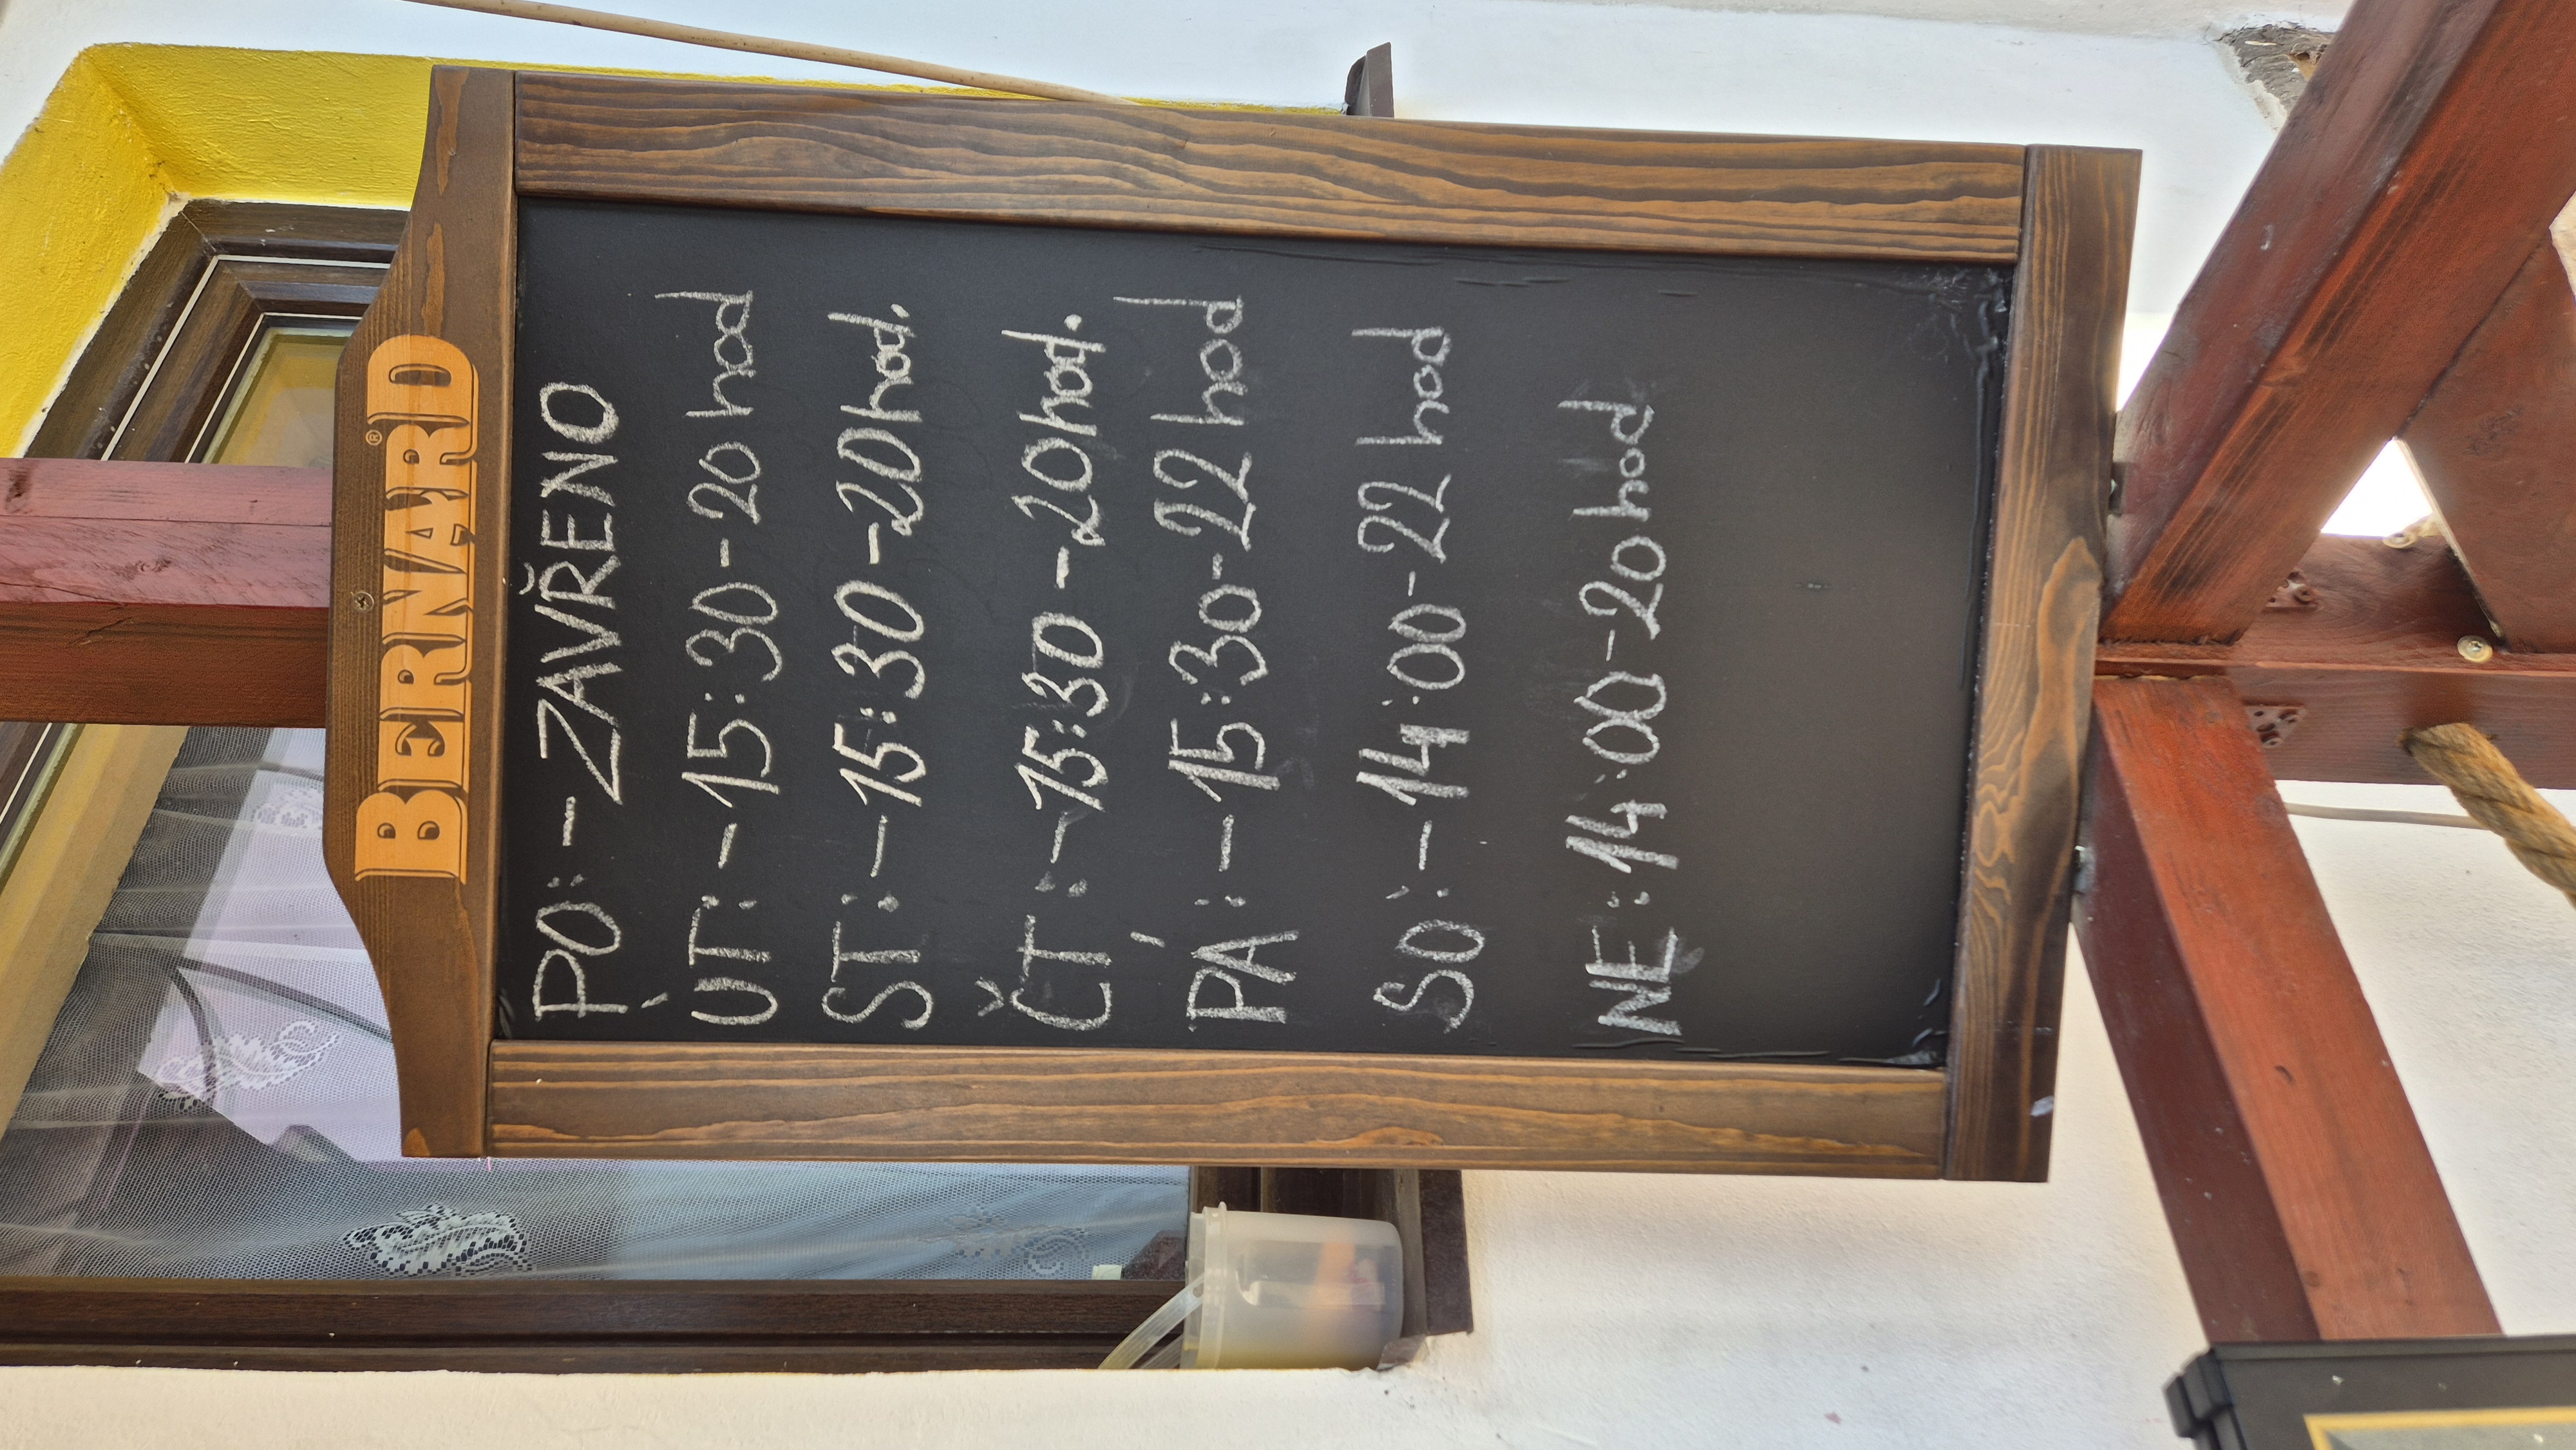 BERNARD®
PO: - ZAVŘENO
ÚT: - 15:30 - 20 hod
ST: - 15:30 - 20 hod.
ČT: - 15:30 - 20 hod.
PÁ: - 15:30 - 22 hod
SO: - 14:00 - 22 hod
NE: 14:00 - 20 hod